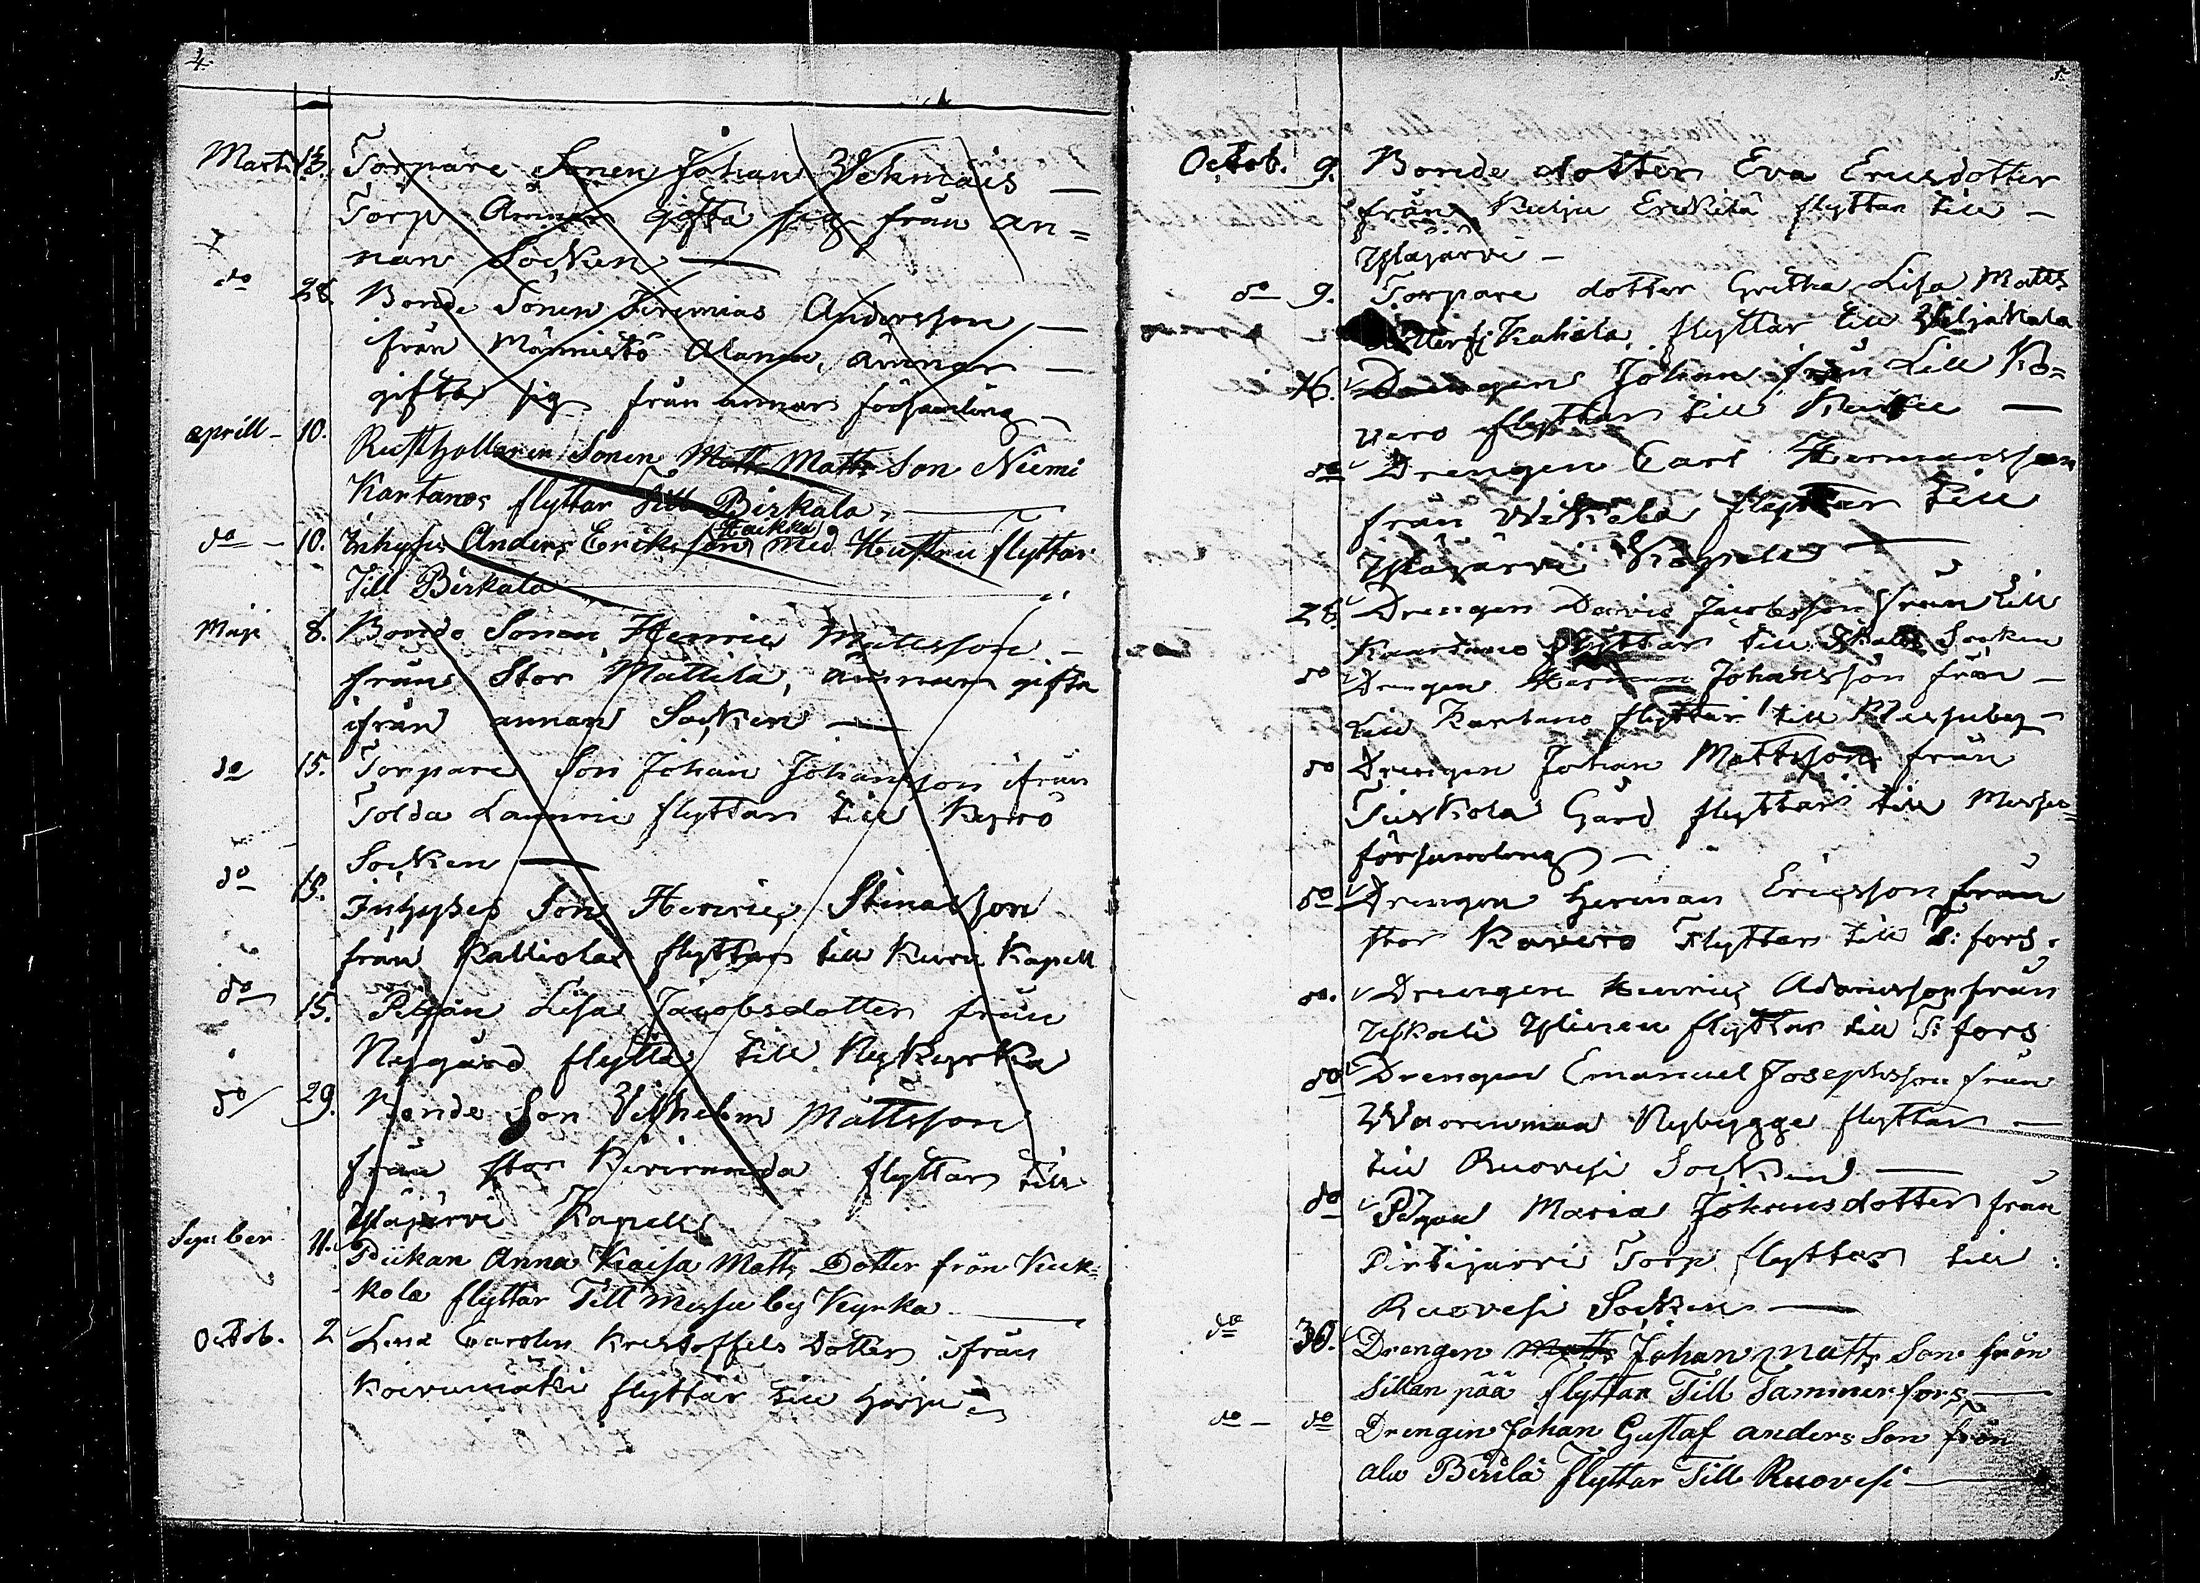 4.
Marti 13. Torpare Sonen Johan Vehmais —
Torp Ämnar gifta sig från an=
nan Socken —
do 28. Bonde Sonen Jeremias Andersson —
från Männistö Alanen, ämnar —
gifta sig från annan församling —
aprill - 10. Rusthollaren Sonen Matts Matts Son Niemi
Kartanos flyttar till Birkala —
do - 10. Inhyses Anders Eriksson Haikka med Hustru flyttar
Till Birkala
Maji 8. Bonde Sonen Henric Mattsson -
från Stor Mattila, ämnar gifta
ifrån annan Socken —
do 15. Torpare Son Johan Johansson ifrån
Tolda Lammi flyttar till Kyrö
Socken —
do 15. Inhyses Son Henric Stinasson
från Kalliola flyttar till Kuru Kapell
do 15. Pigan Lisa Jacobsdotter från
Nygård flytta till Nykyrka
do 29. Bonde Son Vilhelm Mattsson
från stor flyttar till
Yläjärvi Kapell
11. Piikan Anna Kaisa Matts Dotter från Kuk=
kola flyttar Till Messuby Kyrka —
Octob. 2 Lena Carolin Kristoffels Dotter ifrån
Koivumäki flyttar till Harju
5.
Octob. 9. Bonde dotter Eva Ericsdotter
från Kulju Erckilä flyttar till -
Yläjärvi -
do 9. Torpare dotter Gretha Lisa Matts
dotter fr Kahila, flyttar till Viljakala
16. Drengen Johan från Lill Ko=
vero flyttar till —
do Drengen Carl Hermansson
från flyttar till
Yläjärvi Kapell —
26. Drengen David Jacobsson från Lill
Kaartano flyttar till Socken
do Drengen Herman Johansson från -
Lill Kartano flyttar till Messuby -
do Drengen Johan Mattsson från
Tuskola Gård flyttar till Messu=
församling -
do Drengen Herman Ericsson från
stor Kovero Flyttar till T: fors.
do. Drengen Henric Adamsson från
Yskali Ylinen flyttar till T: fors
do Drengen Emanuel Josephsson från
Waorenmaa Nybygge flyttar —
till Ruovesi Socken —
do Pigan Maria Johansdotter från
Pirttijärvi Torp flyttar till :
Ruovesi Socken —
do 30. Drengen Matts Johan Matts Son från
Sillan pää flyttar Till Tammerfors —
do - do Drengen Johan Gustaf anders Son från
ala Birilä flyttar Till Ruovesi —